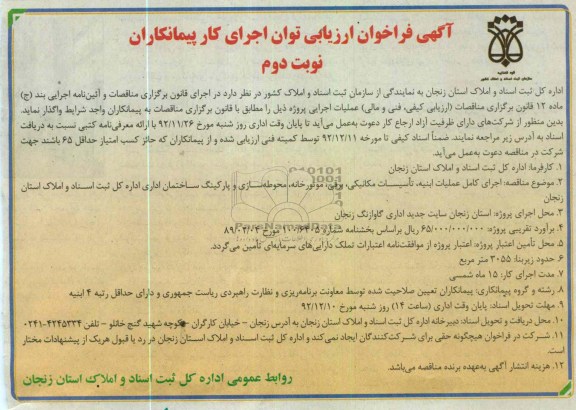 آگهی فراخوان ارزیابی توان اجرای کار پیمانکاران
نوبت دوم
قوه قضائیه
سازمان ثبت اسناد و املاک کشور
اداره کل ثبت اسناد و املاک استان زنجان به نمایندگی از سازمان ثبت اسناد و املاک کشور در نظر دارد در اجرای قانون برگزاری مناقصات و آئین‌نامه اجرایی بند (ج)
ماده ۱۲ قانون برگزاری مناقصات (ارزیابی کیفی، فنی و مالی) عملیات اجرایی پروژه ذیل را مطابق با قانون برگزاری مناقصات به پیمانکاران واجد شرایط واگذار نماید.
بدین منظور از شرکت‌های دارای ظرفیت آزاد ارجاع کار دعوت به‌عمل می‌آید تا پایان وقت اداری روز شنبه مورخ ۹۲/۱۱/۲۶ با ارائه معرفی‌نامه کتبی نسبت به دریافت
اسناد به آدرس زیر مراجعه نمایند. ضمناً اسناد کیفی تا مورخه ۹۲/۱۲/۱۱ توسط کمیته فنی ارزیابی شده و از پیمانکاران که حائز کسب امتیاز حداقل ۶۵ باشند جهت
شرکت در مناقصه دعوت به‌عمل می‌آید.
۱. کارفرما: اداره کل ثبت اسناد و املاک استان زنجان
۲. موضوع مناقصه: اجرای کامل عملیات ابنیه، تأسیسات مکانیکی، برقی، موتورخانه، محوطه‌سازی و پارکینگ ساختمان اداری اداره کل ثبت اسناد و املاک استان
زنجان
۳. محل اجرای پروژه: استان زنجان سایت جدید اداری گاوازنگ زنجان
۴. برآورد تقریبی پروژه: ۶۵/۰۰۰/۰۰۰/۰۰۰ ریال براساس بخشنامه شماره مورخ ۸۹/۰۴/۰۲
۵. محل تأمین اعتبار پروژه: اعتبار پروژه از موافقت‌نامه اعتبارات تملک دارایی‌های سرمایه‌ای تأمین می‌گردد.
۶. حدود زیربنا: ۳۰۵۵ متر مربع
۷. مدت اجرای کار: ۱۵ ماه شمسی
۸. رشته و گروه پیمانکاری: پیمانکاران تعیین صلاحیت شده توسط معاونت برنامه‌ریزی و نظارت راهبردی ریاست جمهوری و دارای حداقل رتبه ۴ ابنیه
۹. مهلت تحویل اسناد: پایان وقت اداری (ساعت ۱۴) روز شنبه مورخ ۹۲/۱۲/۱۰
۱۰. محل دریافت و تحویل اسناد: دبیرخانه اداره کل ثبت اسناد و املاک استان زنجان به آدرس زنجان – خیابان کارگران – کوچه شهید گنج خانلو – تلفن ۴۲۴۵۳۳۴-۰۲۴۱
۱۱. شرکت در فراخوان هیچگونه حقی برای شرکت‌کنندگان ایجاد نمی‌کند و اداره کل ثبت اسناد و املاک استان زنجان در رد یا قبول هریک از پیشنهادات مختار
است.
۱۲. هزینه انتشار آگهی به‌عهده برنده مناقصه می‌باشد.
روابط عمومی اداره کل ثبت اسناد و املاک استان زنجان